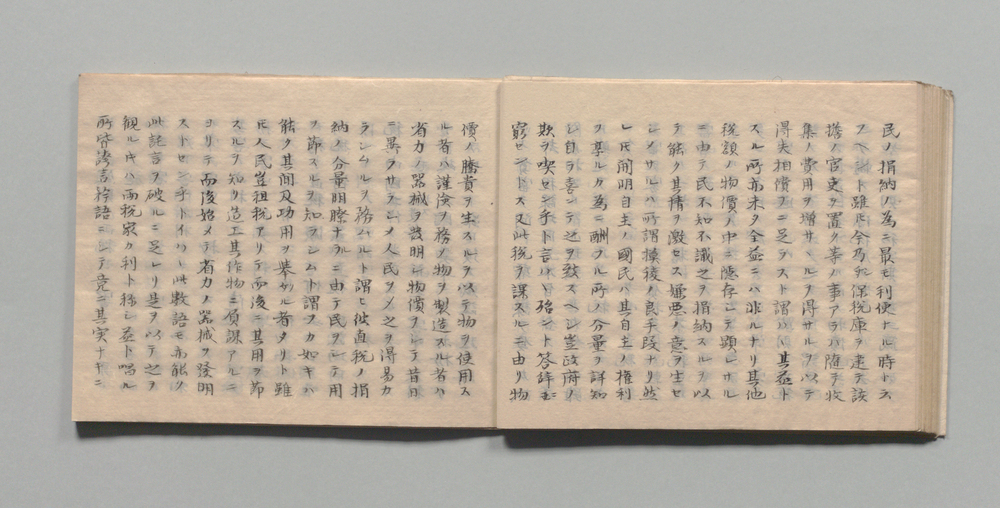 民ノ捐納ノ為ニ最モ利便ナル時トス
フヘシト雖𪜈今為ニ保税庫ヲ建テ該
擔ノ官吏ヲ置ク等ノ事アラハ隨テ收
集ノ費用ヲ増サヽルヲ得サルヲ以テ
得失相償フニ足ラスト謂ハン其益ト
スル所亦未タ全益ニハ非ルナリ其他
税額ノ物價ノ中ニ隱存シテ顕レサル
ニ由テ民不知不識之ヲ捐納スルヲ以
テ能ク其情ヲ激セス嫌悪ノ意ヲ生セ
シメサルハ所謂模稜ノ良手段ナリ然
レ𪜈開明自主ノ國民ハ其自主ノ權利
ヲ享ルカ為ニ酬フル所ノ分量ヲ詳知
シ自ラ喜ンテ之ヲ致スヘシ豈政府ノ
欺ヲ喫センヤト言ハヽ殆ント答詳
窮セントス又此税ヲ課スルニ由リ物
價ノ騰貴ヲ生スルヲ以テ物ヲ使用ス
ル者ハ謹儉ヲ務メ物ヲ製造スル者ハ
省力ノ器械ヲ發明シ物價ヲシテ昔日
ニ異ラサラシメ人民ヲメ之ヲ得易カ
ラシムルヲ務ムルト謂ヒ彼直税ノ捐
納ノ分量明瞭ナルニ由テ民ヲシテ用
ヲ節スルヲ知ラシムト謂フカ如キハ
能ク其間及功用ヲ挙クル者タリト雖
𪜈人民豈租税アリテ而後ニ其用ヲ節
スルヲ知リ造工其作物ニ負課アルニ
ヨリテ而後始メテ省力ノ器械ヲ發明
ストセンヤトイハヽ此数語モ亦能ク
此託言ヲ破ルニ足レリ是ヲ以テ之ヲ
観ル𪜈ハ両税家カ利ト稱シ益ト唱ル
所皆誇言矜語ニシテ竟ニ其実ナキニ